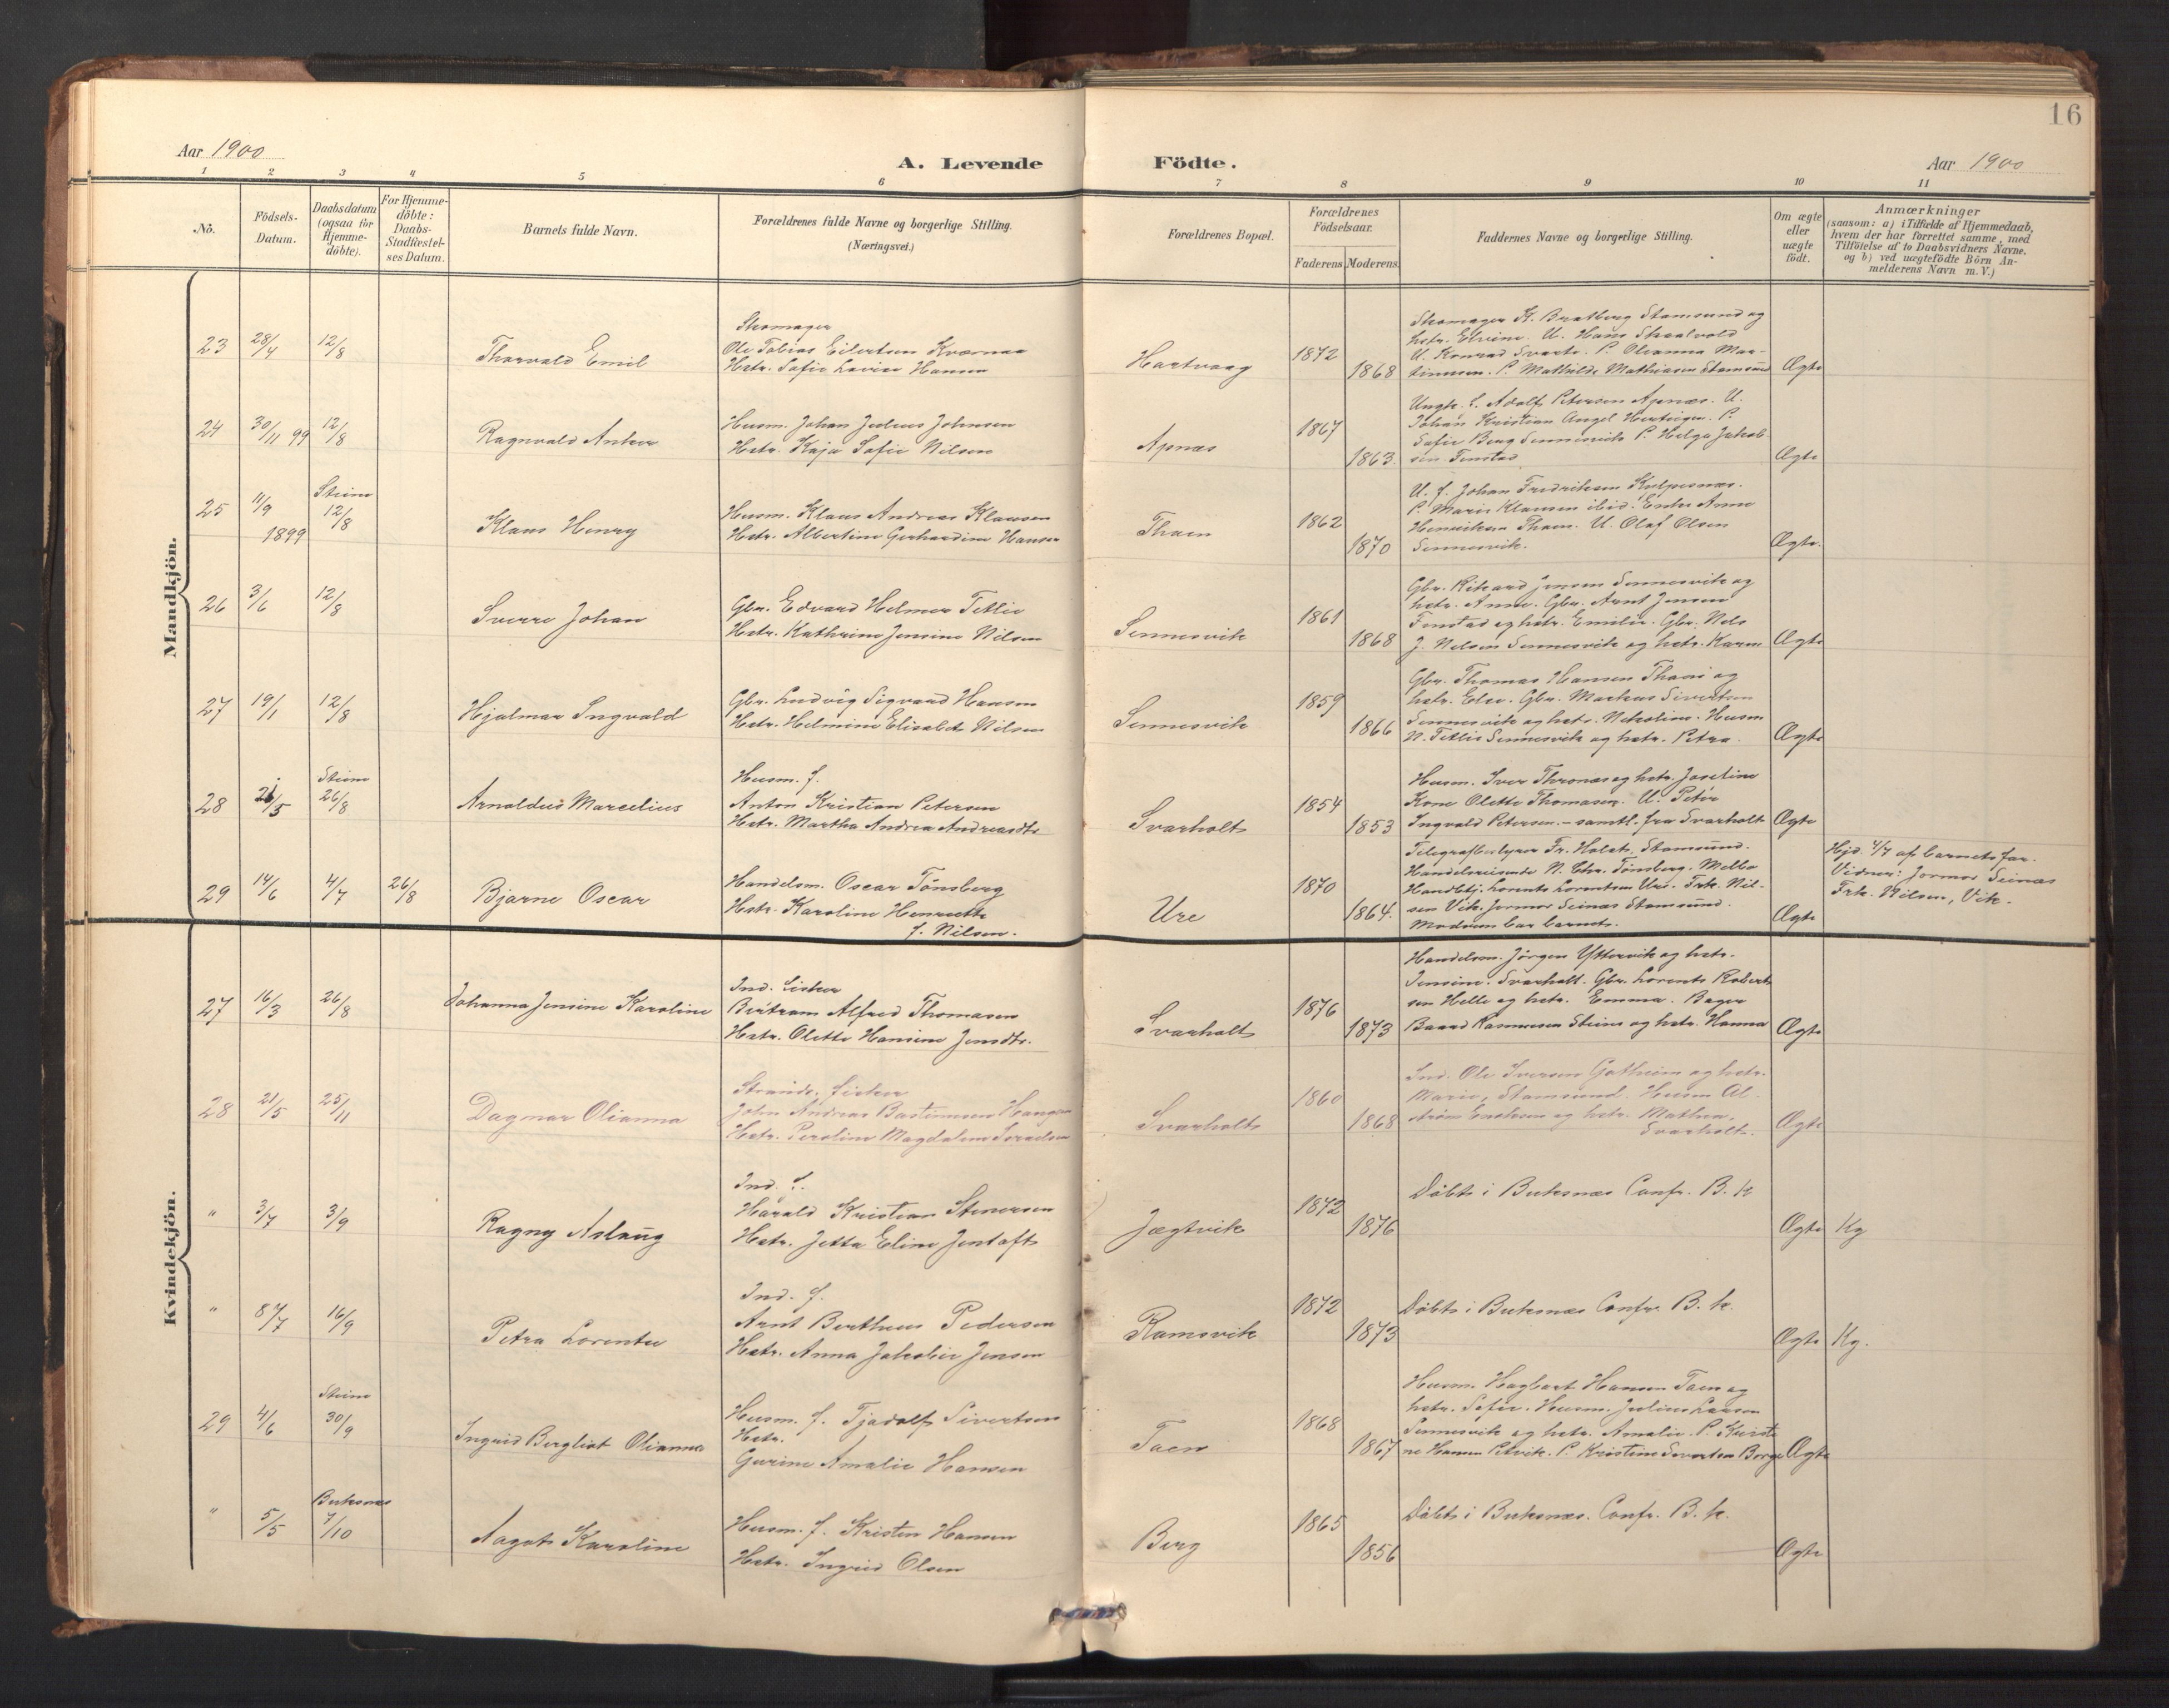 16
Aar 1900
A. Levende Födte.
Aar 1900
1 2 3 4 5 6 7 8 9 10 11
No.
Födsels-Datum.
Daabsdatum (ogsaa for Hjemme-döbte).
For Hjemme-döbte: Daabs-Stadfæstel-ses Datum.
Barnets fulde Navn.
Forældrenes fulde Navne og borgerlige Stilling.
(Næringsvei.)
Forældrenes Bopæl.
Forældrenes Födselsaar.
Faderens Moderens
Faddernes Navne og borgerlige Stilling.
Om ægte eller uægte födt.
Anmærkninger
(saasom: a) i Tilfælde af Hjemmedaab,
hvem der har forrettet samme, med
Tilföielse af to Daabsvidners Navne,
og b) ved uægtefödte Börn An-
melderens Navn m. V.)
Mandkjön.
23 28/4 12/8 Thorvald Emil
Skomager
Ole Tobias Eilertsen Kværnaa
Hstr. Sofie Lovise Hansen
Hartvaag 1872 1868
Skomager K. Bratberg Stamsund og
hstr. Elvine. U. Hans Skaalvold
U. Konrad Svarte. P. Oleanna Mar-
tinussen. P. Mathilde Mathiasen Stamsund
Ægte
24 30/11 99 12/8 Ragnvald Anker
Husm. Johan Julius Johnsen
Hstr. Kaja Sofie Nilsen
Apnæs 1867 1863.
Ungk. L. Adolf Petersen Apnæs. U.
Johan Kristian Angel Hertigen. P.
Sofie Berg Sennesvik P. Helga Jakob-
sen Fenstad
Ægte
25 11/9 1899 Steine 12/8 Klaus Henry
Husm. Klaus Andreas Klausen
Hstr. Albertine Gerhardine Hansen
Thaen 1862 1870
U. f. Johan Fredriksen Kylpesnæs.
P. Marie Klausen ibid. Enke Anne
Henriksen Thaen. U. Olaf Olsen
Sennesvik.
Ægte.
26 3/6 12/8 Sverre Johan
Gbr. Edvard Helmer Tetlie
Hstr. Kathrine Jensine Nilsen
Sennesvik 1861 1868
Gbr. Rikard Jensen Sennesvik og
hstr. Anne. Gbr. Arnt Jensen
Fenstad og hstr. Emilie. Gbr. Nels
J. Nelsen Sennesvik og hstr. Karen
Ægte
27 19/1 12/8 Hjalmar Ingvald
Gbr. Ludvig Sigvard Hansen
Hstr. Helmine Elisabet Nilsen
Sennesvik 1859 1866
Gbr. Thomas Hansen Thaen og
hstr. Else. Gbr. Markus Sivertsen
Sennesvik og hstr. Nikoline. Husm
N. Tetlie Sennesvik og hstr. Petra.
Ægte
28 21/5 Steine 26/8 Arnoldus Marcelius
Husm. f.
Anton Kristian Petersen
Hstr. Martha Andrea Andreasdtr
Svarholt 1854 1853
Husm. Iver Thronæs og hstr. Josefine
Kone Olette Thomasen. U. Peter
Ingvald Petersen. – samtl. fra Svarholt
Ægte
29 14/6 4/7 26/8 Bjarne Oscar
Handelsm. Oscar Tönsberg
Hstr. Karoline Henriette
f. Nilsen.
Ure 1870 1864.
Telegrafbestyrer Fr. Holst, Stamsund.
Handelsreisende N. Chr. Tönsberg. Melbo
Handbtj. Lorents Lorentsen Ure. Frk. Nil-
sen Vik. Jormor Seinæs Stamsund.
Moderen bar barnet.
Ægte
Hjd. 4/7 af barnets far.
Vidner: Jormor Seinæs
Frk. Nilsen, Vik.
Kvindekjön.
27 16/3 26/8 Johanna Jensine Karoline
Ind. fisker
Bertram Alfred Thomasen
Hstr. Olette Hansine Jensdtr.
Svarholt 1876 1873
Handelsm. Jörgen Yttervik og hstr.
Jensine. Svarholt. Gbr. Lorents Robert-
sen Helle og hstr. Emma. Bager
Baard Rasmussen Steine og hstr. Hanna
Ægte
28 21/5 25/11 Dagmar Olianna
Strands. fisker
John Andreas Bastiansen Haug
Hstr. Peroline Magdalene Israelsen
Svarholt 1860 1868
Ind. Ole Iversen Gotheim og hstr.
Marie, Stamsund. Husm Al-
Enoksen og hstr. Mathea,
Svarholt.
Ægte
" 3/7 3/9 Ragny Aslaug
Ind. f.
Harald Kristian Stenersen
Hstr. Jetta Eline Jentoft
Jægtvik 1872 1876
Döbt i Buksnæs Confr. B. k
Ægte Kg
" 8/7 16/9 Petra Lorentse
Ind. f.
Arnt Bertheus Pedersen
Hstr. Anna Jakobie Jensen
Ramsvik 1872 1873
Döbt i Buksnæs Confr. B. k.
Ægte Kg.
29 4/6 Steine 30/9 Ingrid Bergliot Olianna
Husm. f. Tjadolf Sivertsen
Hstr.
Gurine Amalie Hansen
Taen 1868 1867
Husm. Hagbart Hansen Taen og
hstr. Sofie. Husm. Julius Larsen
Sennesvik og hstr. Amalie. P. Kirsti-
ne Hansen Petvik. P. Kristine Sivertsen Borge
Ægte
" 5/5 Buksnæs 7/10 Aagot Karoline
Husm. f. Kristen Hansen
Hstr. Ingrid Olsen
Berg 1865 1856
Döbt i Buksnæs. Confr. B. k.
Ægte